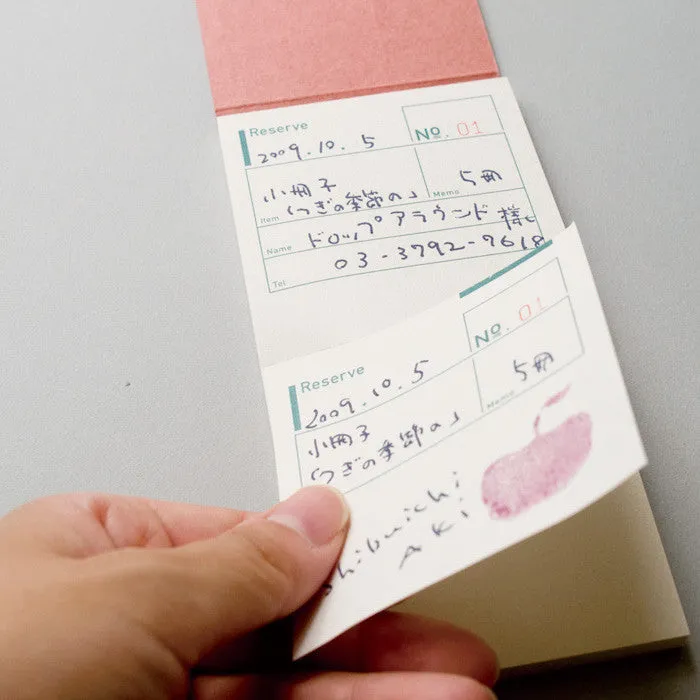 Reserve
No. 01
2009.10.5
小冊子
「つぎの季節の」
Item
5冊
Memo
Name
ドロップアラウンド 様
Tel
03-3792-7618
Reserve
No. 01
2009.10.5
小冊子
「つぎの季節の」
5冊
Memo
Aki